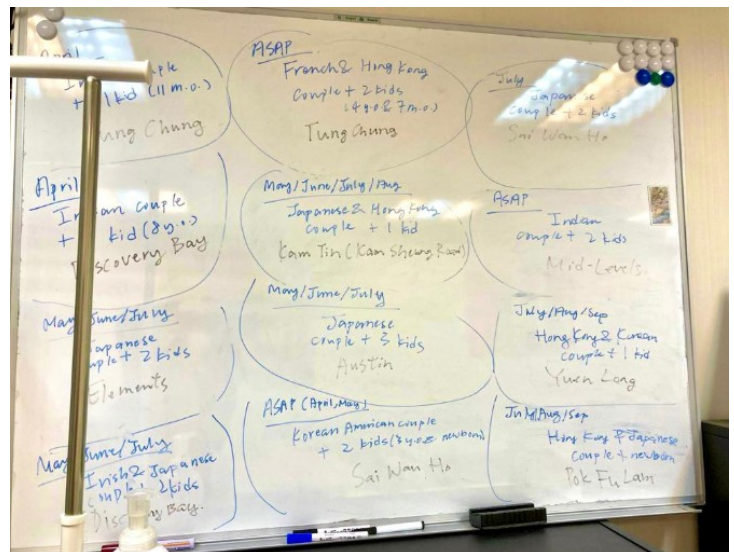 April
+ 1 kid (11 m.o.)
Tung Chung
April
Indian couple
+ kid (8 y.o.)
Discovery Bay
May/June/July
Japanese
couple + 2 kids
Elements
May/June/July
Irish & Japanese
couple + 2 kids
Discovery Bay.
ASAP
French & Hong Kong
couple + 2 kids
(4 y.o & 7 m.o.)
Tung Chung
May/June/July/Aug
Japanese & Hong Kong
couple + 1 kid
Kam Tin (Kam Sheung Road)
May/June/July
Japanese
couple + 3 kids
Austin
ASAP (April, May)
Korean American couple
+ 2 kids (8 y.o & newborn)
Sai Wan Ho
July
Japanese
couple + 2 kids
Sai Wan Ho
ASAP
Indian
couple + 2 kids
Mid-Levels.
July/Aug/Sep
Hong Kong & Korean
couple + 1 kid
Yuen Long
July/Aug/Sep
Hong Kong & Japanese
couple + newborn
Pok Fu Lam